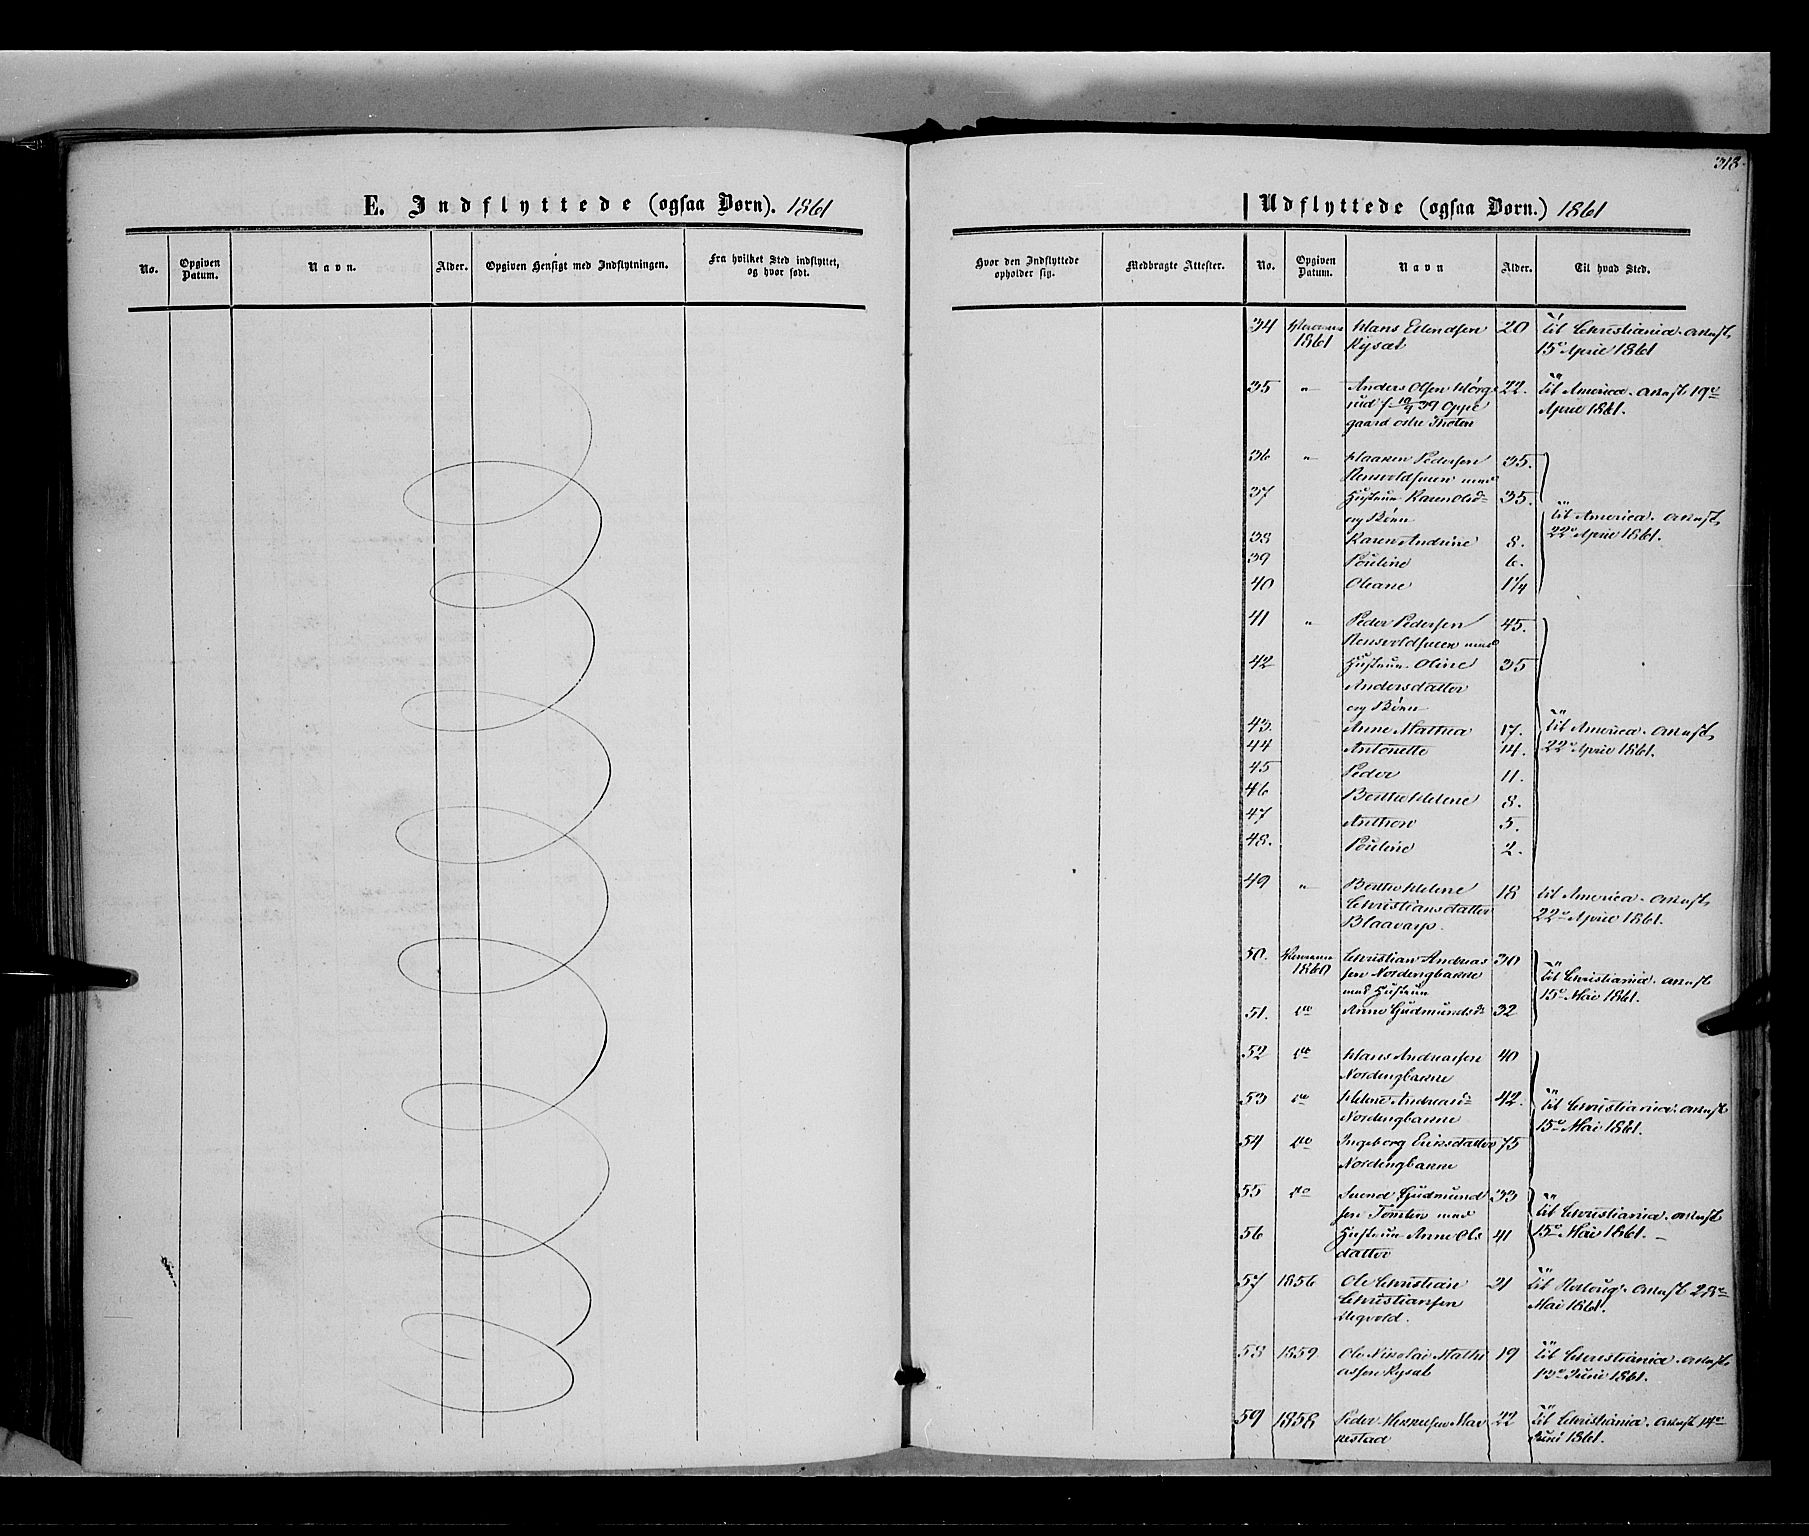 318.
E. Indflyttede (ogsaa Børn). 1861
No.
Opgiven Datum.
Navn.
Alder.
Opgiven Hensigt med Indflytningen.
Fra hvilket Sted indflyttet, og hvor født.
Hvor den Indflyttede opholder sig.
Medbragte Attester.
Udflyttede (ogsaa Børn.) 1861
No.
Opgiven Datum.
Navn
Alder.
Til hvad Sted.
34 1861 Hans Erlendsen 20 til Christiania. Attest
Kysæt 15de April 1861
35 " Anders Olsen 22. til America. Attest 19de
f 10/9 39 Oppe April 1861.
gaard østre Thoten
36 " Haaken Pedersen 35.
med
37 Hustrue Karen Olsd. 35. til America. Attest
og Børn 22de April 1861.
38 Karen Andrine 8.
39 Pouline 6.
40 Oleane 1 1/4
41 " Peder Pedersen 45.
med
42 Hustrue Oline 35
Andersdatter
og Børn
43. Anne Mathea 17. til America. Attest
44 Antonette 14. 22de April 1861.
45 Peder 11.
46 Berthe Helene 8.
47 Anthon 5.
48. Pouline 2.
49 " Berthe Helene 18 til America. Attest
Christiansdatter 22de April 1861.
Blaavarp.
50. 1860 Christian Andreas 30 til Christiania. Attest
sen Nordengbakke 15de Mai 1861.
med Hustrue
51. do Anne Gudmundsd. 32
52 do Hans Andreassen 40
Nordengbakke
53 do Helene Andreasd. 42. til Christiania. Attest
Nordengbakke 15de Mai 1861.
54 do Ingeborg Eriksdatter 75
Nordengbakke
55 do Svend Gudmund 33 til Christiania. Attest
sen Tømten med 15de Mai 1861.
56 Hustrue Anne Ols 41
datter
57 1856 Ole Christian 21 til Attest 28de
Christiansen Mai 1861.
58 1859 Ole Nikolai Mathi 19 til Christiania. Attest
assen Kysæt 13de Juni 1861.
59 1858 Peder Mikkelsen 22 til Christiania. Attest 14de
Juni 1861.